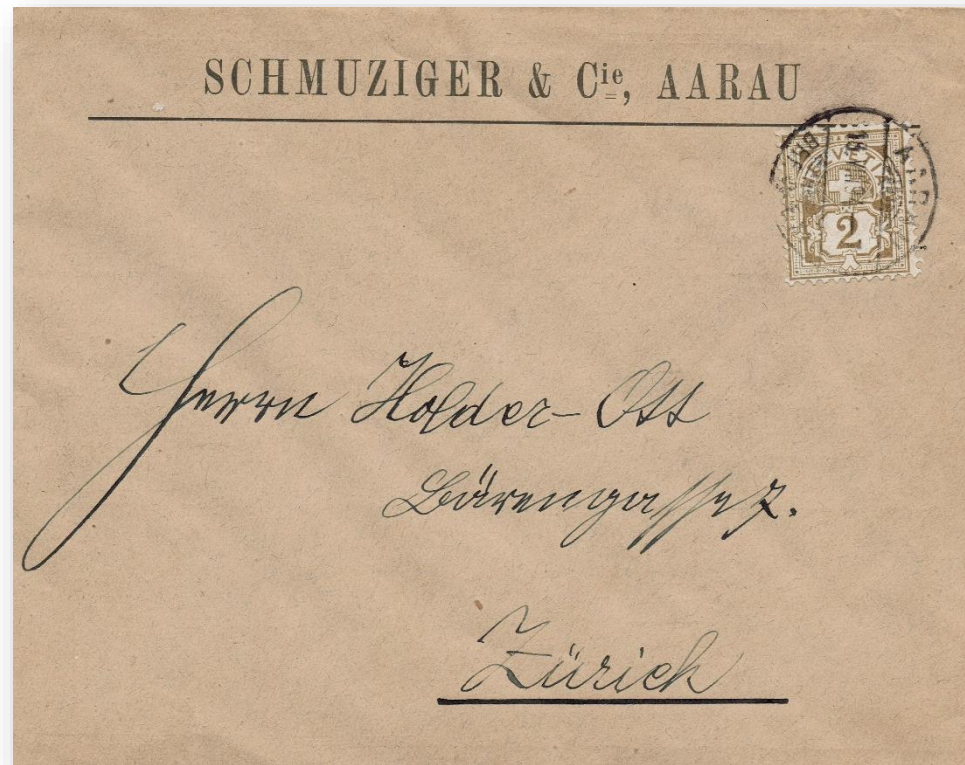 SCHMUZIGER & Cie, AARAU
HELVETIA
2
Herrn Holder-Ott
Bärengasse 7.
Zürich